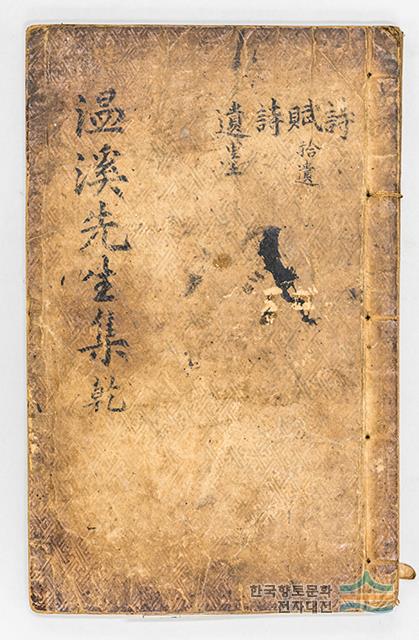 詩
賦
拾遺
詩
遺
温溪先生集 乾
한국향토문화
전자대전